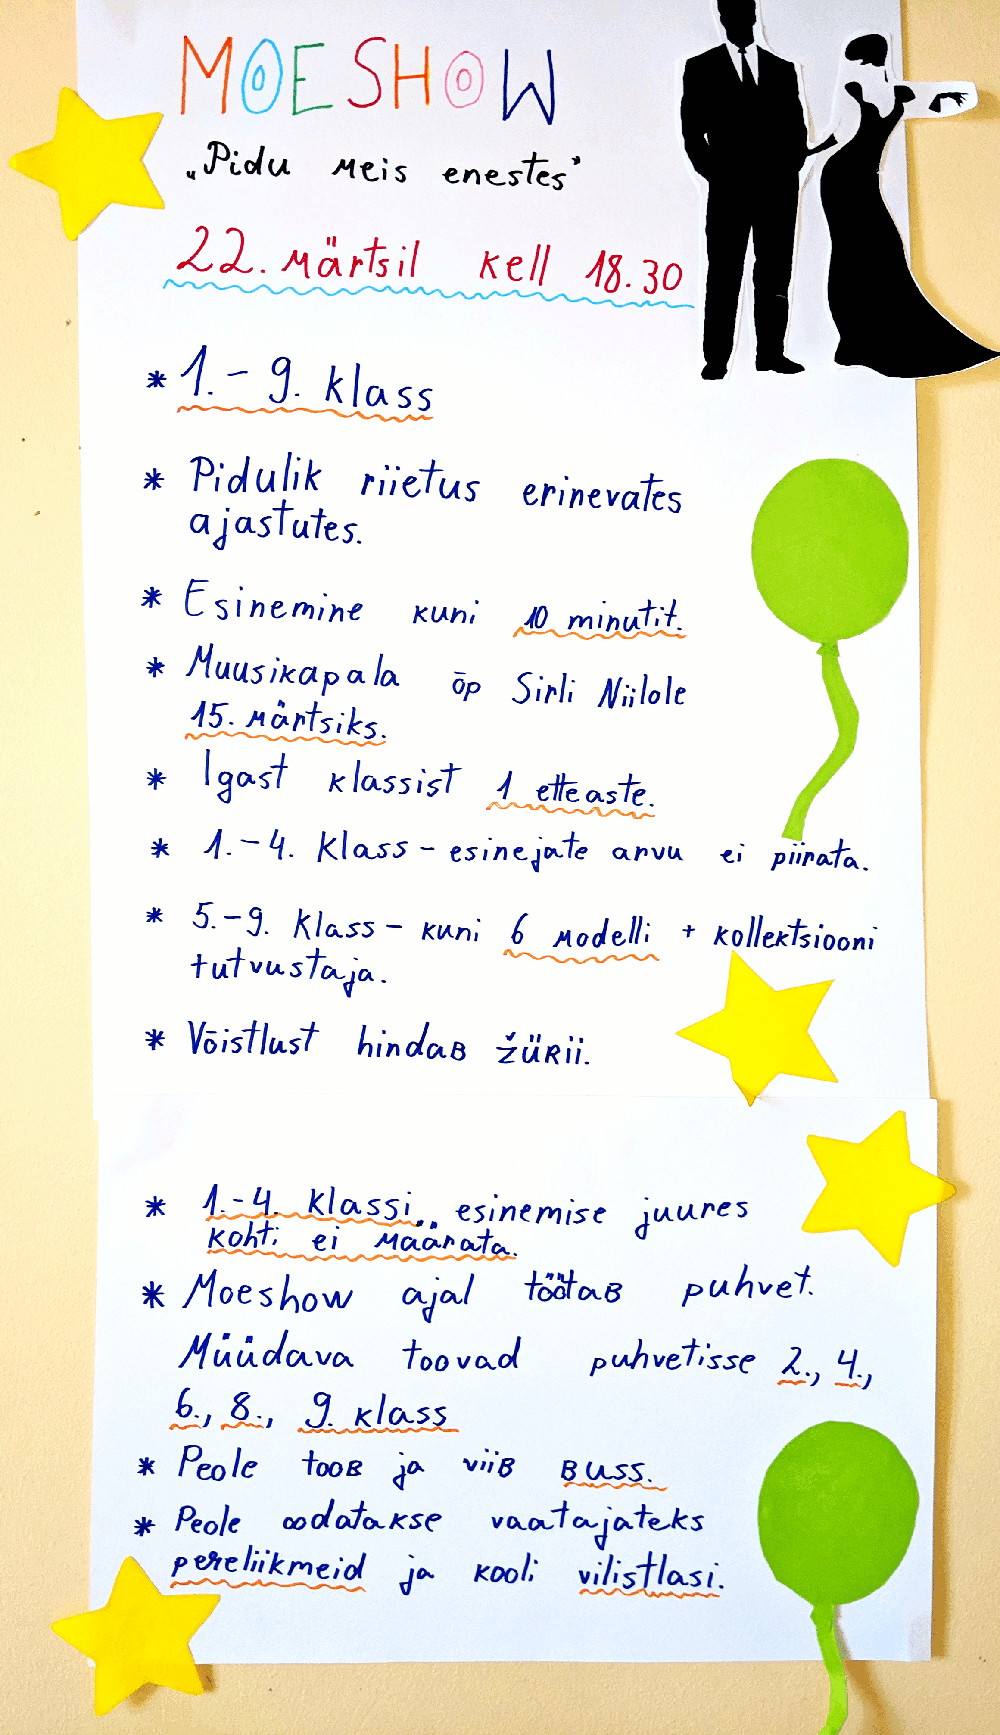 MOESHOW
„Pidu meis enestes"
22. märtsil kell 18.30
* 1.- 9. klass
* Pidulik riietus erinevates
ajastutes.
* Esinemine kuni 10 minutit.
* Muusikapala õp Sirli Niilole
15. märtsiks.
* Igast klassist 1 etteaste.
* 1.-4. klass - esinejate arvu ei piirata.
* 5.-9. klass - kuni 6 modelli + kollektsiooni
tutvustaja.
* Võistlust hindab žürii.
* 1.-4. klassi esinemise juures
kohti ei määrata.
* Moeshow ajal töötab puhvet.
Müüdava toovad puhvetisse 2., 4.,
6., 8., 9. klass
* Peole toob ja viib buss.
* Peole oodatakse vaatajateks
pereliikmeid ja kooli vilistlasi.